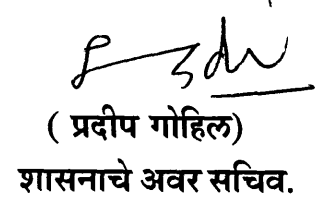 ( प्रदीप गोहिल)
शासनाचे अवर सचिव.